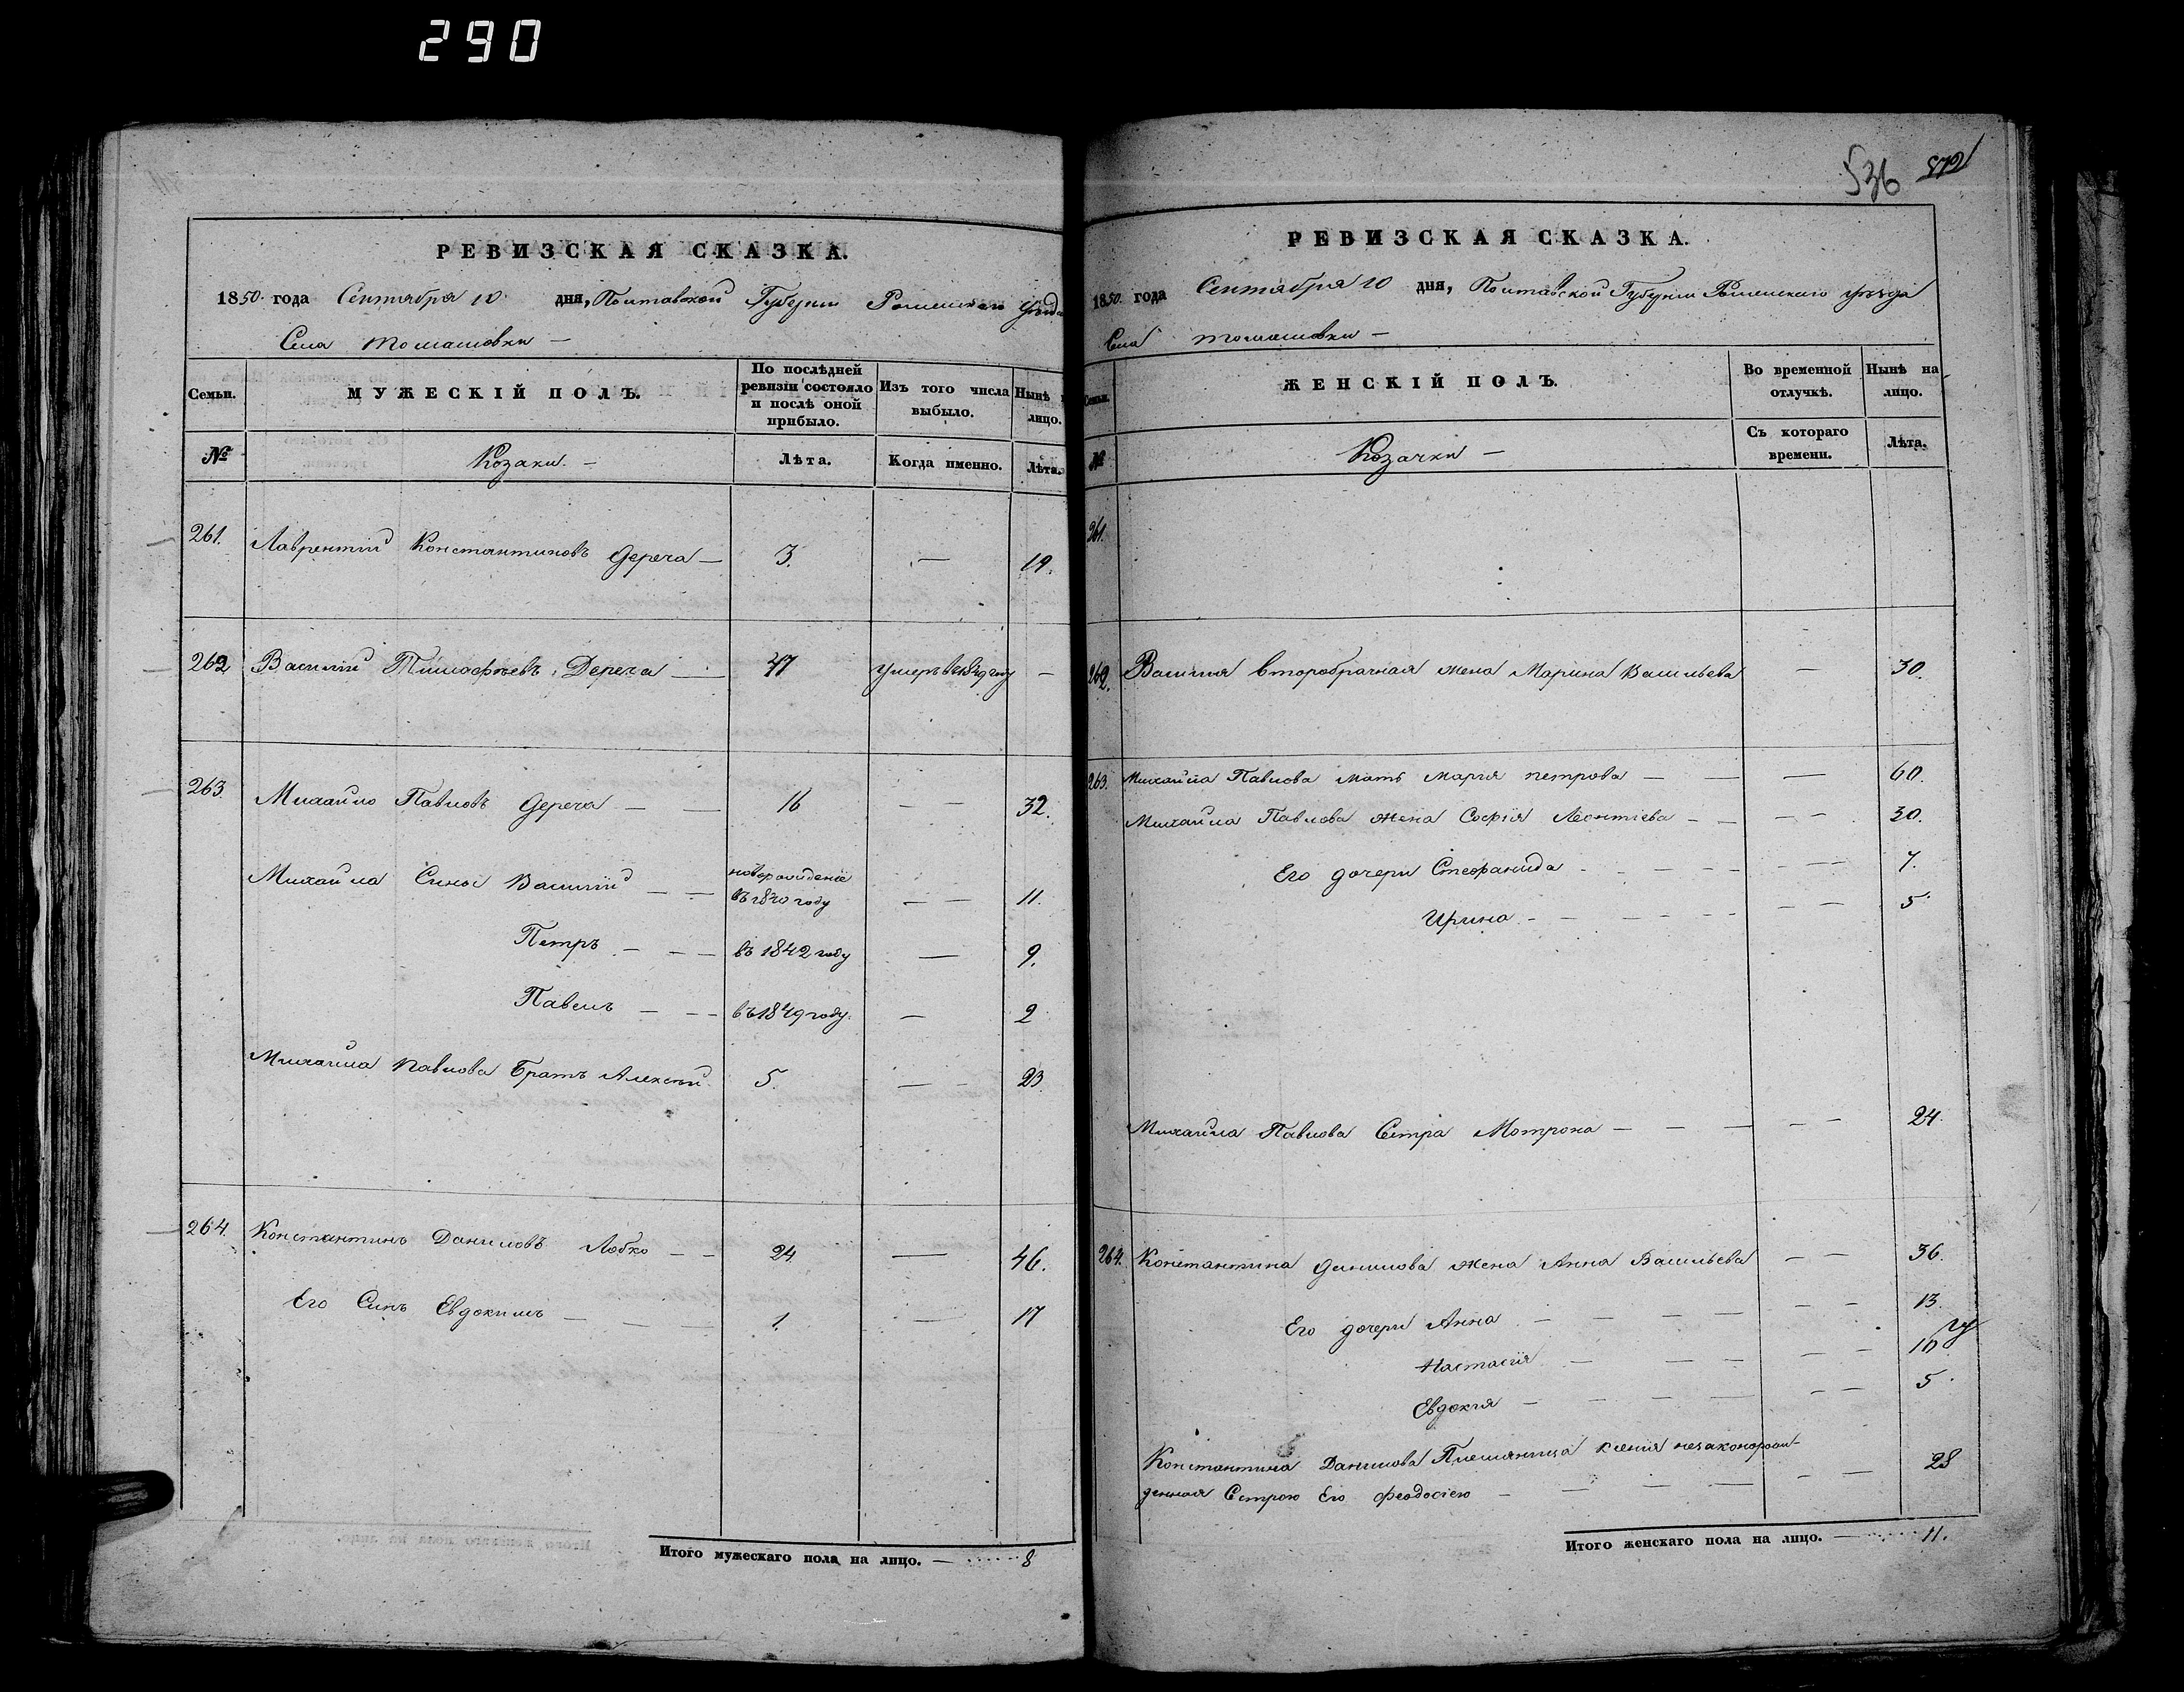 290
РЕВИЗСКАЯ СКАЗКА.
1850. года Сентября 10 дня, Полтавской Губернии Роменскаго уѣзда
Села Томашовки —
Семьи.
МУЖЕСКІЙ ПОЛЪ.
По послѣдней ревизіи состояло и послѣ оной прибыло.
Изъ того числа выбыло.
Нынѣ на лицо.
№
Козаки. —
Лѣта.
Когда именно.
Лѣта.
261. Лаврентій Константиновъ Дереча — 3. — 19.
262 Василій Тимофѣевъ Дереча — 47 умеръ въ 1849 году —
263. Михайло Павловъ Дереча — — 16 — — 32.
Михайла Сины Василій — — новорожденіе въ 1840 году — — 11.
Петръ — — — въ 1842 году — 9.
Павелъ — — — въ 1849 году. — 2
Михайла Павлова Братъ Алексѣй 5. — — 23.
264. Константинъ Даниловъ Лобко — — 24. — 46.
Его Синъ Евдокимъ — — — 1. — 17
Итого мужескаго пола на лицо. — 8
536 872
РЕВИЗСКАЯ СКАЗКА.
1850. года Сентября 10 дня, Полтавской Губернии Роменскаго уѣзда
Села Томашовки —
Семьи.
ЖЕНСКІЙ ПОЛЪ.
Во временной отлучкѣ.
Нынѣ на лицо.
№
Козачки —
Съ котораго времени.
Лѣта.
261.
262. Василія второбрачная жена Марина Васильева — 30.
263. Михайла Павлова мать Марія петрова — — — 60.
Михайла Павлова жена Софія Леонтіева — — — — 30.
Его дочери Стефанида — — — — — — 7.
Ирина — — — — — — — — 5
Михайла Павлова Сестра Мотрона — — — — — 24.
264. Константина Данилова жена Анна Васильева — — 36.
Его дочери Анна — — — — — — 13.
Настасія — — — — — 10
Евдокія — — — — — — 5
Константина Данилова Племянница Ксенія незаконорож-
денная Сестрою Его Феодосіею — — — — — — 28
Итого женскаго пола на лицо. — 11.